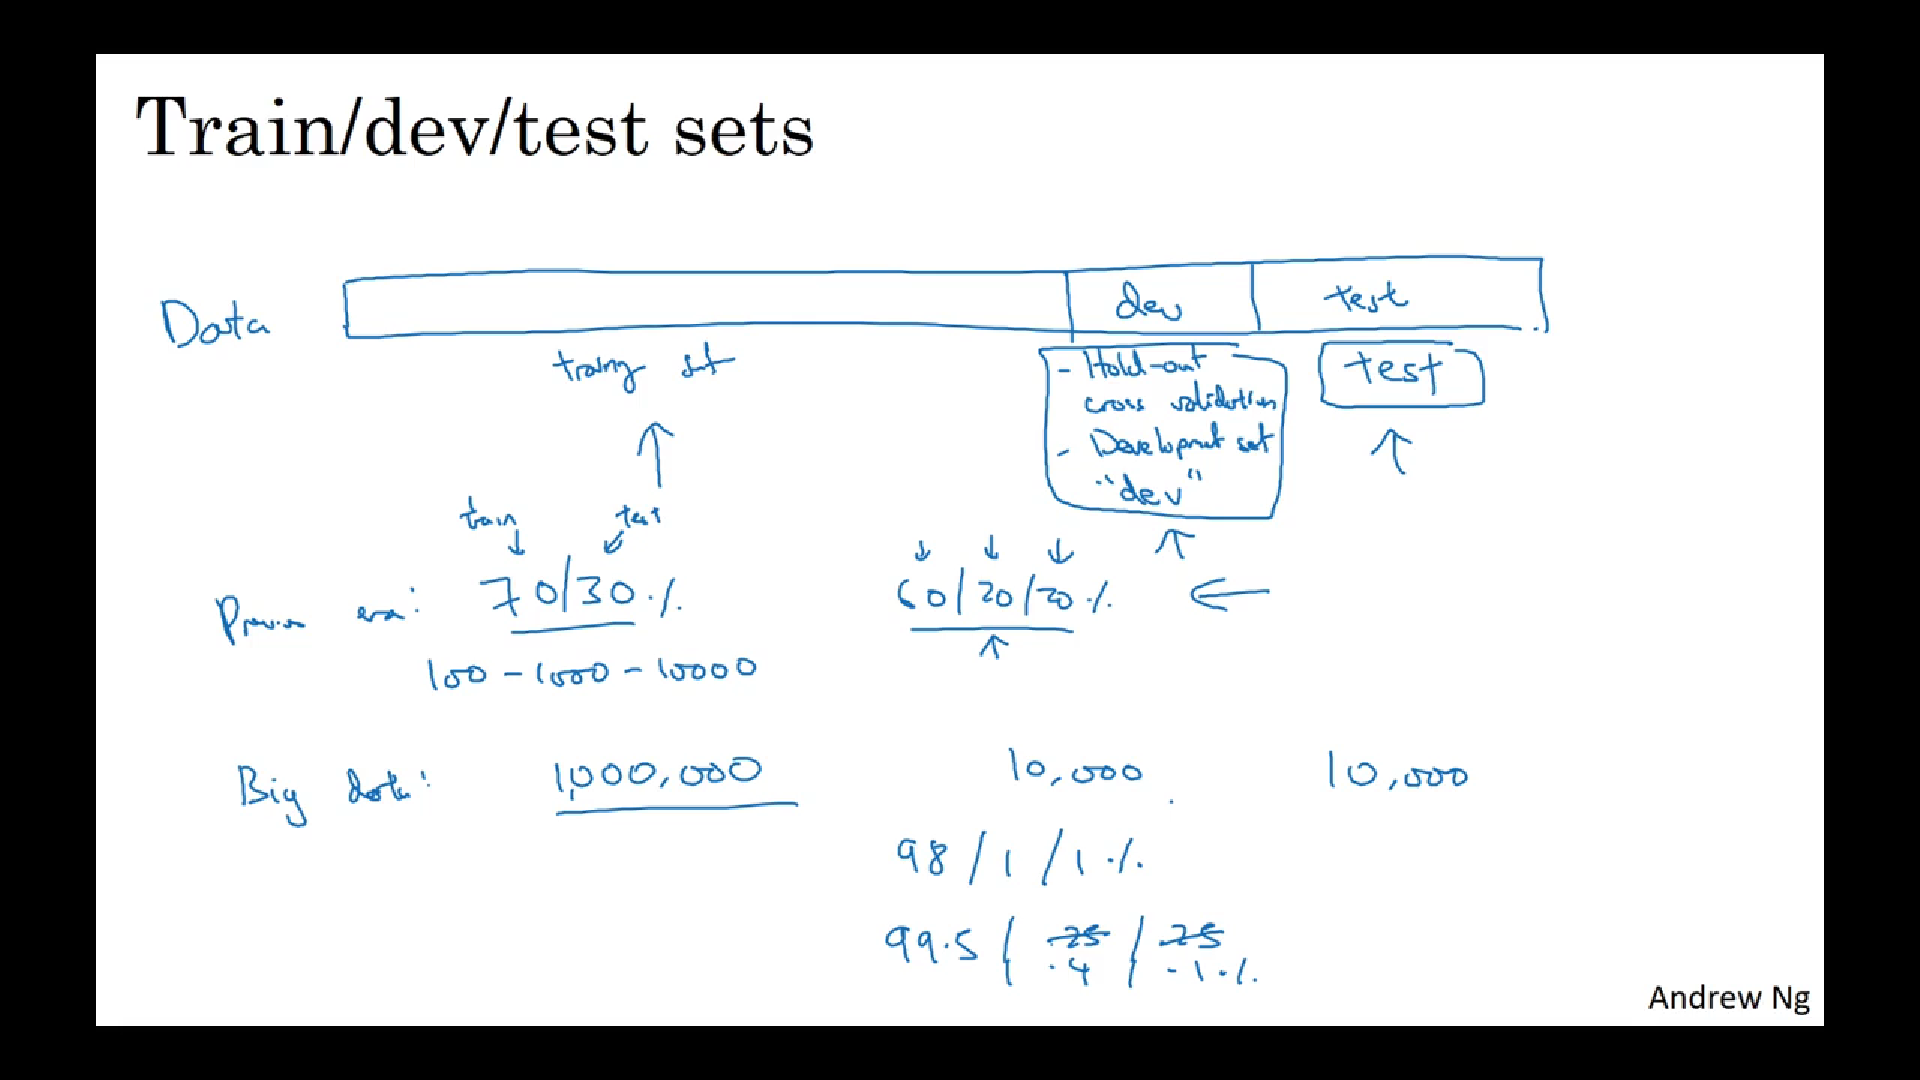 Train/dev/test sets
Data
dev
test
training set
- Hold-out
cross validation
- Development set
"dev"
test
train
test
Previous era:
70/30%
60/20/20%
100 - 1000 - 10000
Big data:
1,000,000
10,000
10,000
98/1/1%
99.5 / .25 / .25
.4
.1%
Andrew Ng